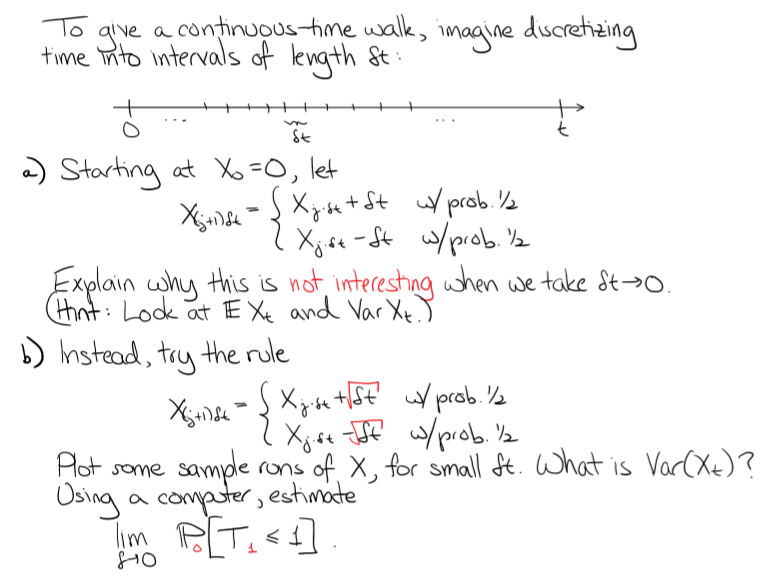 To give a continuous-time walk, imagine discretizing
time into intervals of length δt:
0 ... δt ... t
a) Starting at X₀=0, let
X₍ⱼ₊₁₎δt = { Xⱼ·δt + δt w/ prob. ½
Xⱼ·δt - δt w/prob. ½
Explain why this is not interesting when we take δt→0.
(Hint: Look at E Xt and Var Xt.)
b) Instead, try the rule
X₍ⱼ₊₁₎δt = { Xⱼ·δt + √δt w/ prob. ½
Xⱼ·δt - √δt w/prob. ½
Plot some sample runs of X, for small δt. What is Var(Xt)?
Using a computer, estimate
lim P₀[T₁ ≤ 1].
δ→0